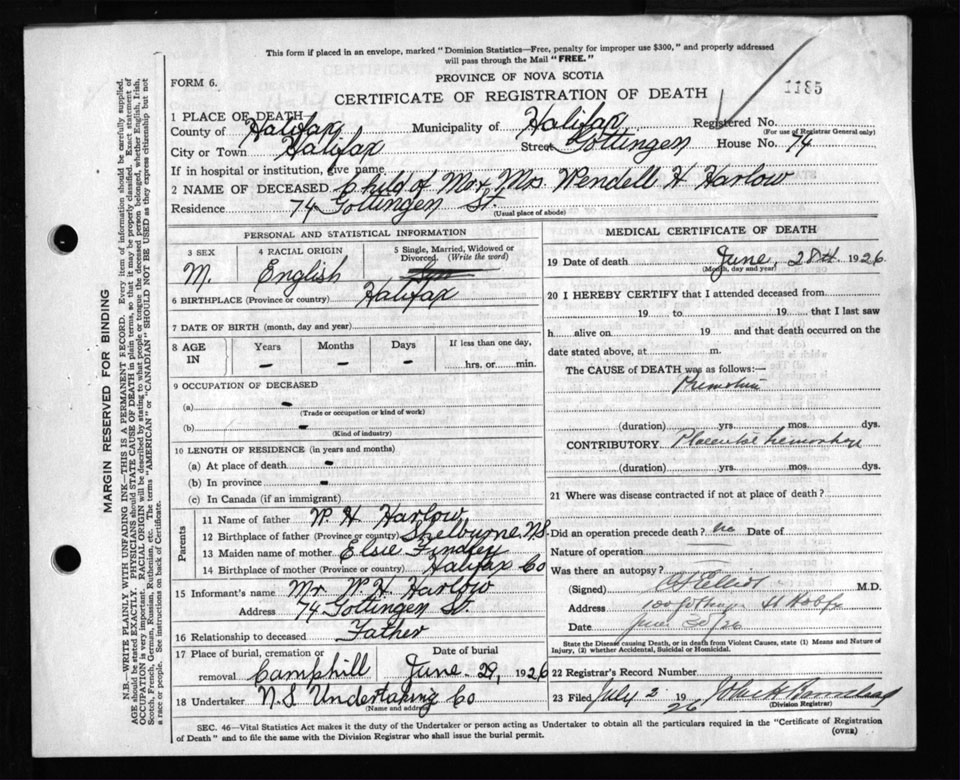 This form if placed in an envelope, marked "Dominion Statistics—Free, penalty for improper use $300," and properly addressed
will pass through the Mail "FREE."
FORM 6.
PROVINCE OF NOVA SCOTIA
1185
CERTIFICATE OF REGISTRATION OF DEATH
1 PLACE OF DEATH
Registered No.
(For use of Registrar General only)
County of Halifax Municipality of Halifax
City or Town Halifax Street Gottingen House No. 74
If in hospital or institution, give name
2 NAME OF DECEASED Child of Mr & Mrs Wendell H Harlow
Residence 74 Gottingen St.
(Usual place of abode)
PERSONAL AND STATISTICAL INFORMATION
3 SEX 4 RACIAL ORIGIN 5 Single, Married, Widowed or
Divorced. (Write the word)
M. English
6 BIRTHPLACE (Province or country) Halifax
7 DATE OF BIRTH (month, day and year)
8 AGE IN Years Months Days If less than one day,
— — — hrs. or min.
9 OCCUPATION OF DECEASED
(a) -
(Trade or occupation or kind of work)
(b) -
(Kind of industry)
10 LENGTH OF RESIDENCE (in years and months)
(a) At place of death -
(b) In province -
(c) In Canada (if an immigrant)
Parents
11 Name of father W. H. Harlow
12 Birthplace of father (Province or country) Shelburne, N.S.
13 Maiden name of mother Elsie Findley
14 Birthplace of mother (Province or country) Halifax Co
15 Informant's name Mr W. H. Harlow
Address 74 Gottingen St.
16 Relationship to deceased Father
17 Place of burial, cremation or Date of burial
removal Camphill June 29, 1926
18 Undertaker N.S Undertaking Co
(Name and address)
MEDICAL CERTIFICATE OF DEATH
19 Date of death June, 28th 1926
(Month, day and year)
20 I HEREBY CERTIFY that I attended deceased from
19 to 19 that I last saw
h alive on 19 and that death occurred on the
date stated above, at m.
The CAUSE of DEATH was as follows:—
(duration) yrs. mos. dys.
CONTRIBUTORY Placental
(duration) yrs. mos. dys.
21 Where was disease contracted if not at place of death?
Did an operation precede death? no Date of
Nature of operation
Was there an autopsy?
(Signed) Elliot M.D.
Address 100 Gottingen St
Date June 30/26
State the Disease causing Death, or in death from Violent Causes, state (1) Means and Nature of
Injury, (2) whether Accidental, Suicidal or Homicidal.
22 Registrar's Record Number
23 Filed July 2 1926
(Division Registrar)
SEC. 46—Vital Statistics Act makes it the duty of the Undertaker or person acting as Undertaker to obtain all the particulars required in the "Certificate of Registration
of Death" and to file the same with the Division Registrar who shall issue the burial permit.
(OVER)
MARGIN RESERVED FOR BINDING
N.B.—WRITE PLAINLY WITH UNFADING INK—THIS IS A PERMANENT RECORD. Every item of information should be carefully supplied.
AGE should be stated EXACTLY. PHYSICIANS should STATE CAUSE OF DEATH in plain terms, so that it may be properly classified. Exact statement of
OCCUPATION is very important. RACIAL ORIGIN will be described by stating to what people or tongue the deceased person belonged, whether English, Irish,
Scotch, French, German, Russian, Ruthenian, etc. The terms "AMERICAN" or "CANADIAN" SHOULD NOT BE USED as they express citizenship but not
a race or people. See instructions on back of Certificate.